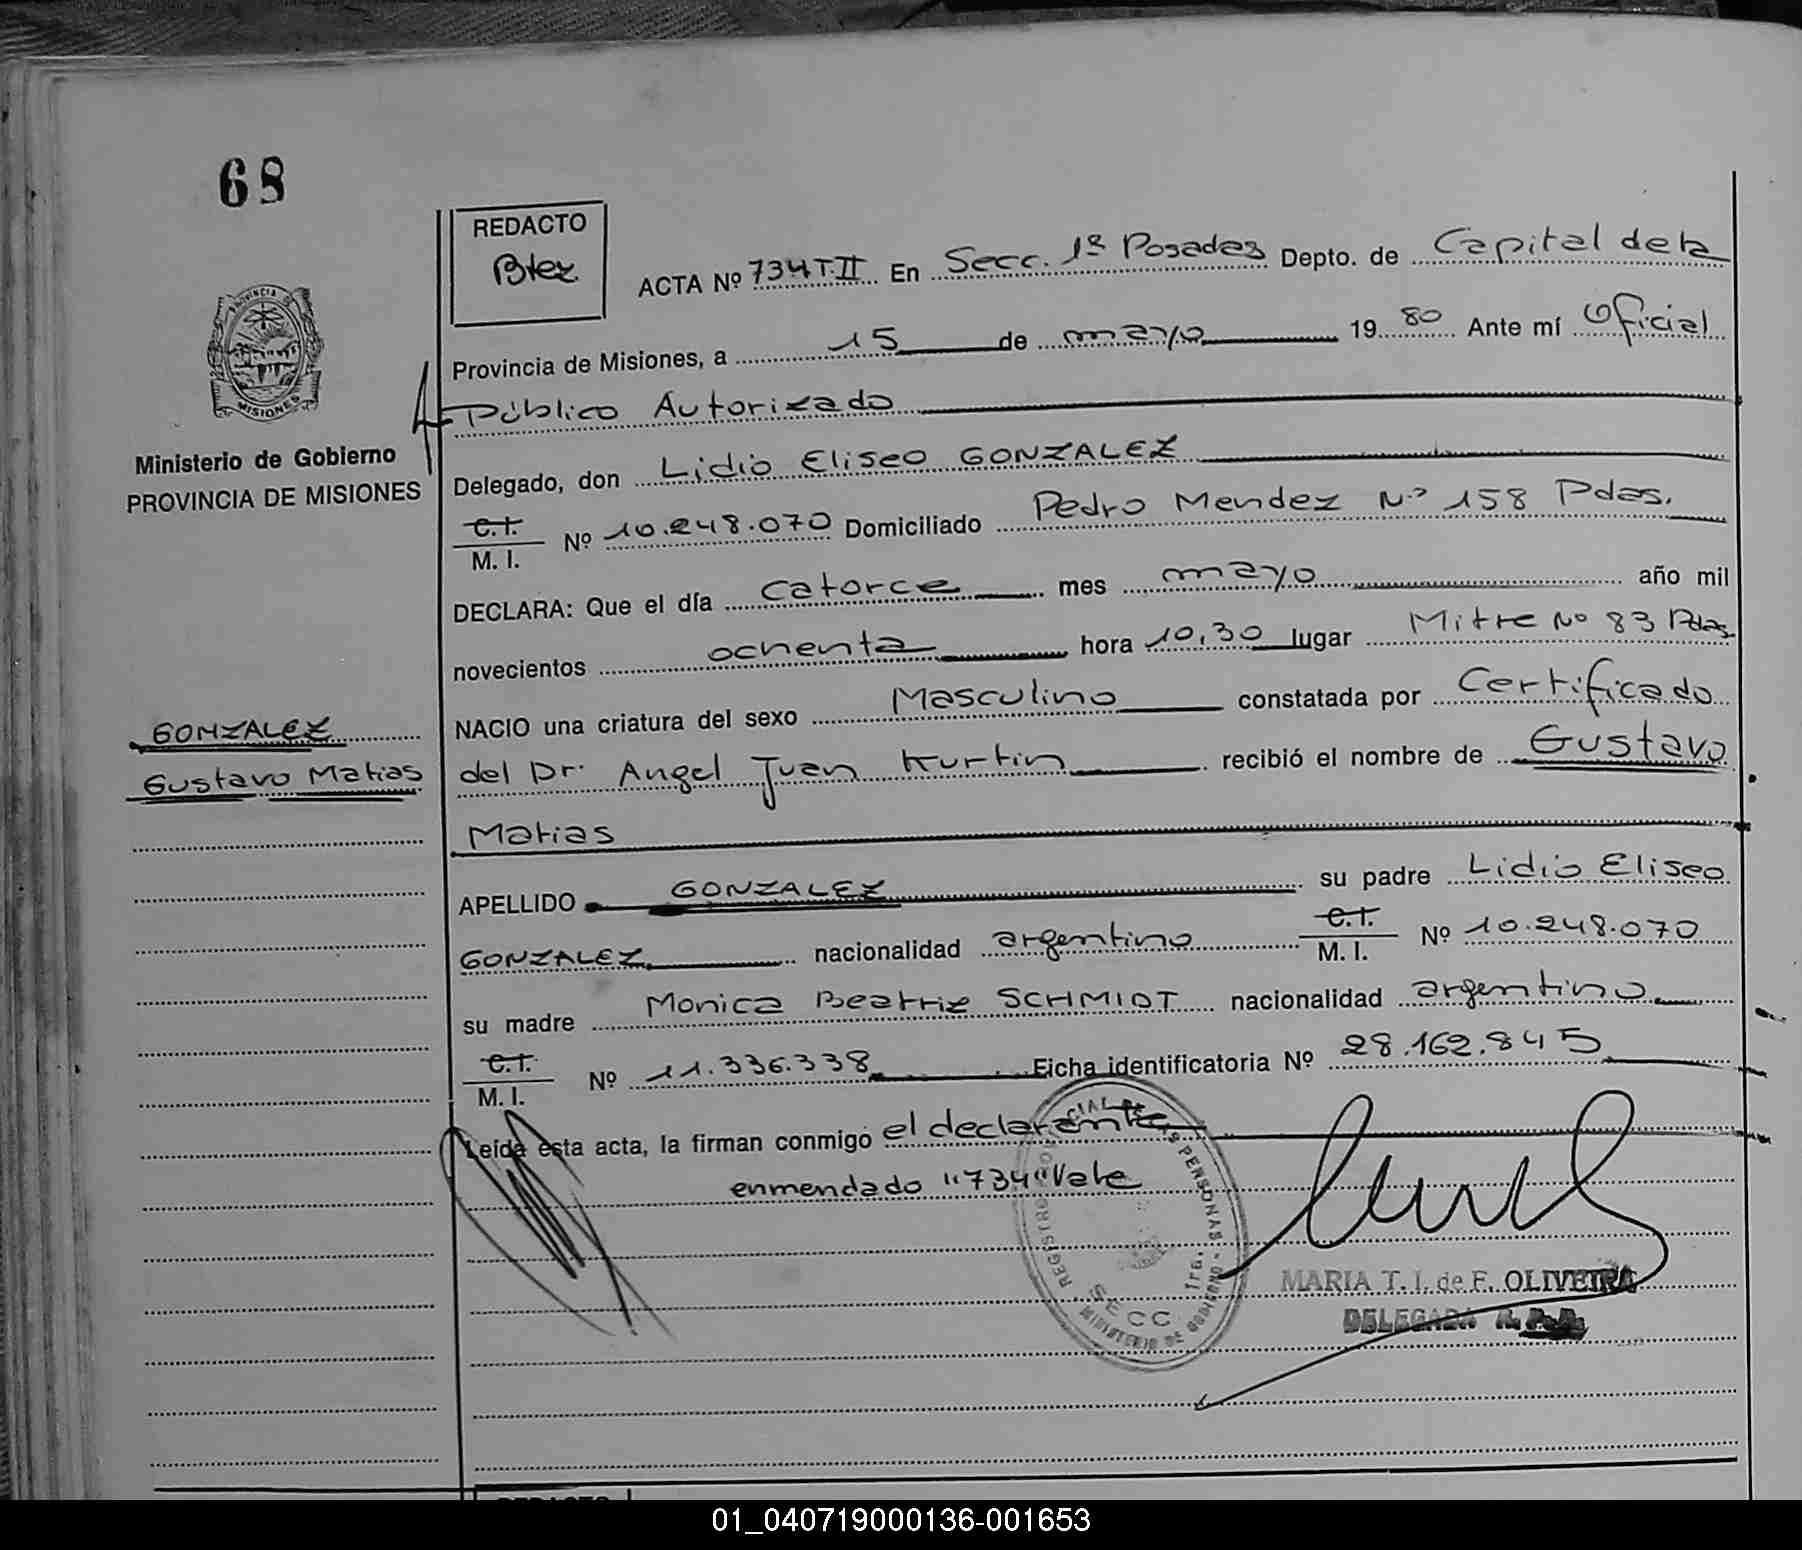 68
REDACTO
Btez
ACTA Nº 734 T.II En Secc. 1ª Posadas Depto. de Capital de la
Provincia de Misiones, a 15 de mayo 19 80 Ante mí Oficial
Público Autorizado
PROVINCIA
MISIONES
Ministerio de Gobierno
PROVINCIA DE MISIONES
Delegado, don Lidio Eliseo GONZALEZ
C.I.
M. I. Nº 10.248.070 Domiciliado Pedro Mendez Nº 158 Pdas.
DECLARA: Que el día catorce mes mayo año mil
novecientos ochenta hora 10,30 lugar Mitre Nº 83 Pdas.
NACIO una criatura del sexo Masculino constatada por Certificado
GONZALEZ
Gustavo Matias
del Dr. Angel Juan Kurtin recibió el nombre de Gustavo
Matias
APELLIDO GONZALEZ su padre Lidio Eliseo
GONZALEZ nacionalidad argentino C.I.
M. I. Nº 10.248.070
su madre Monica Beatriz SCHMIDT nacionalidad argentino
C.I.
M. I. Nº 11.336.338 Ficha identificatoria Nº 28.162.845
Leída esta acta, la firman conmigo el declarante
enmendado "734" Vale
PERSONAS
SECC 1ra.
MINISTERIO DE GOBIERNO
MARIA T. I. de F. OLIVEIRA
DELEGADA R. P. P.
REDACTO
01_040719000136-001653